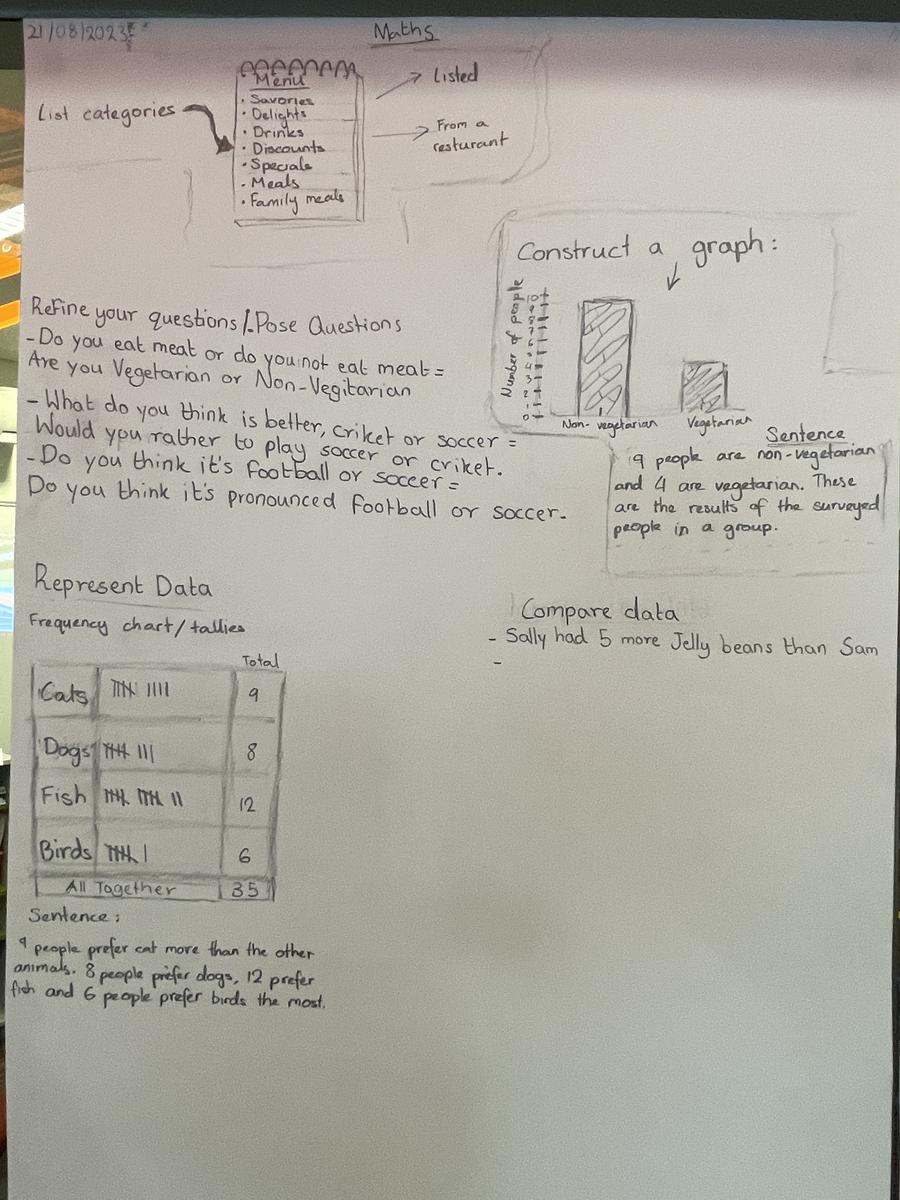 21/08/2023
Maths
List categories
Menu
• Savories
• Delights
• Drinks
• Discounts
• Specials
• Meals
• Family meals
Listed
From a
resturant
Construct a graph:
Number of people
10
9
8
7
6
5
4
3
2
1
0
Non-vegetarian
Vegetarian
Sentence
9 people are non-vegetarian
and 4 are vegetarian. These
are the results of the surveyed
people in a group.
Refine your questions/.Pose Questions
- Do you eat meat or do you not eat meat =
Are you Vegetarian or Non-Vegitarian
- What do you think is better, criket or soccer =
Would you rather to play soccer or criket.
- Do you think it's football or soccer =
Do you think it's pronounced football or soccer.
Represent Data
Frequency chart/tallies
Total
Cats 9
Dogs 8
Fish 12
Birds 6
All Together 35
Sentence:
9 people prefer cat more than the other
animals. 8 people prefer dogs, 12 prefer
fish and 6 people prefer birds the most.
Compare data
- Sally had 5 more Jelly beans than Sam
-